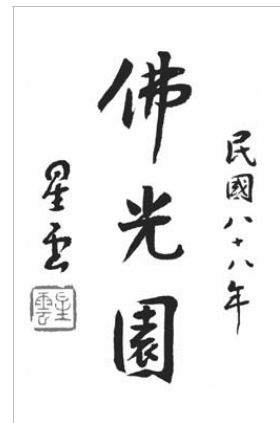 民國八十八年
佛光園
星雲
星雲